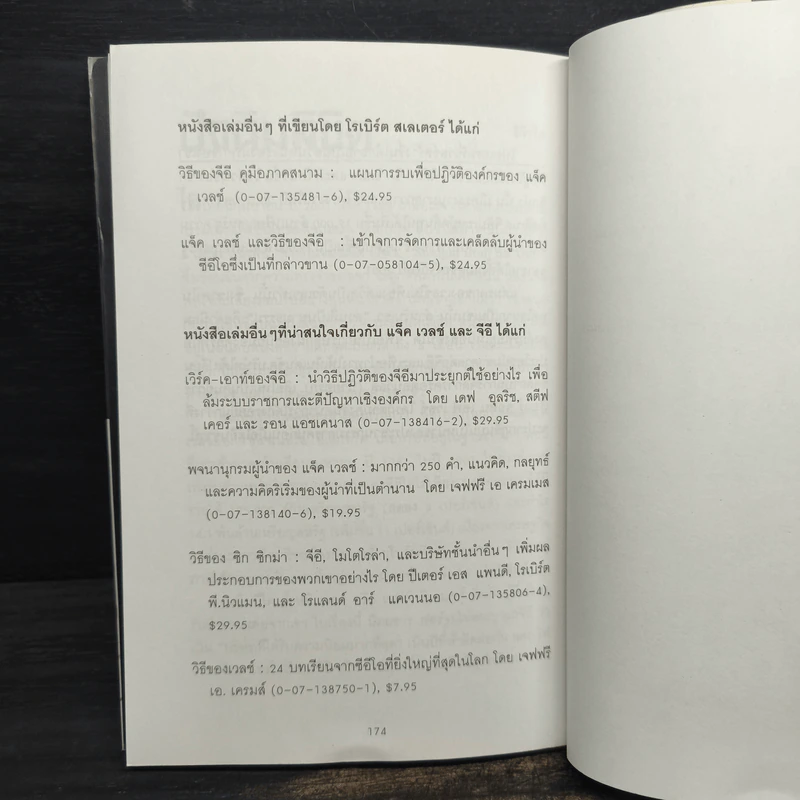 หนังสือเล่มอื่นๆ ที่เขียนโดย โรเบิร์ต สเลเตอร์ ได้แก่
วิธีของจีอี คู่มือภาคสนาม : แผนการรบเพื่อปฏิวัติองค์กรของ แจ็ค
เวลช์ (0-07-135481-6), $24.95
แจ็ค เวลช์ และวิธีของจีอี : เข้าใจการจัดการและเคล็ดลับผู้นำของ
ซีอีโอซึ่งเป็นที่กล่าวขาน (0-07-058104-5), $24.95
หนังสือเล่มอื่นๆที่น่าสนใจเกี่ยวกับ แจ็ค เวลช์ และ จีอี ได้แก่
เวิร์ค-เอาท์ของจีอี : นำวิธีปฏิวัติของจีอีมาประยุกต์ใช้อย่างไร เพื่อ
ล้มระบบราชการและตีปัญหาเชิงองค์กร โดย เดฟ อุลริช, สตีฟ
เคอร์ และ รอน แอชเคนาส (0-07-138416-2), $29.95
พจนานุกรมผู้นำของ แจ็ค เวลช์ : มากกว่า 250 คำ, แนวคิด, กลยุทธ์
และความคิดริเริ่มของผู้นำที่เป็นตำนาน โดย เจฟฟรี เอ เครมเมส
(0-07-138140-6), $19.95
วิธีของ ซิก ซิกม่า : จีอี, โมโตโรล่า, และบริษัทชั้นนำอื่นๆ เพิ่มผล
ประกอบการของพวกเขาอย่างไร โดย ปีเตอร์ เอส แพนดี, โรเบิร์ต
พี.นิวแมน, และ โรแลนด์ อาร์ แคเวนนอ (0-07-135806-4),
$29.95
วิธีของเวลช์ : 24 บทเรียนจากซีอีโอที่ยิ่งใหญ่ที่สุดในโลก โดย เจฟฟรี
เอ. เครมส์ (0-07-138750-1), $7.95
174